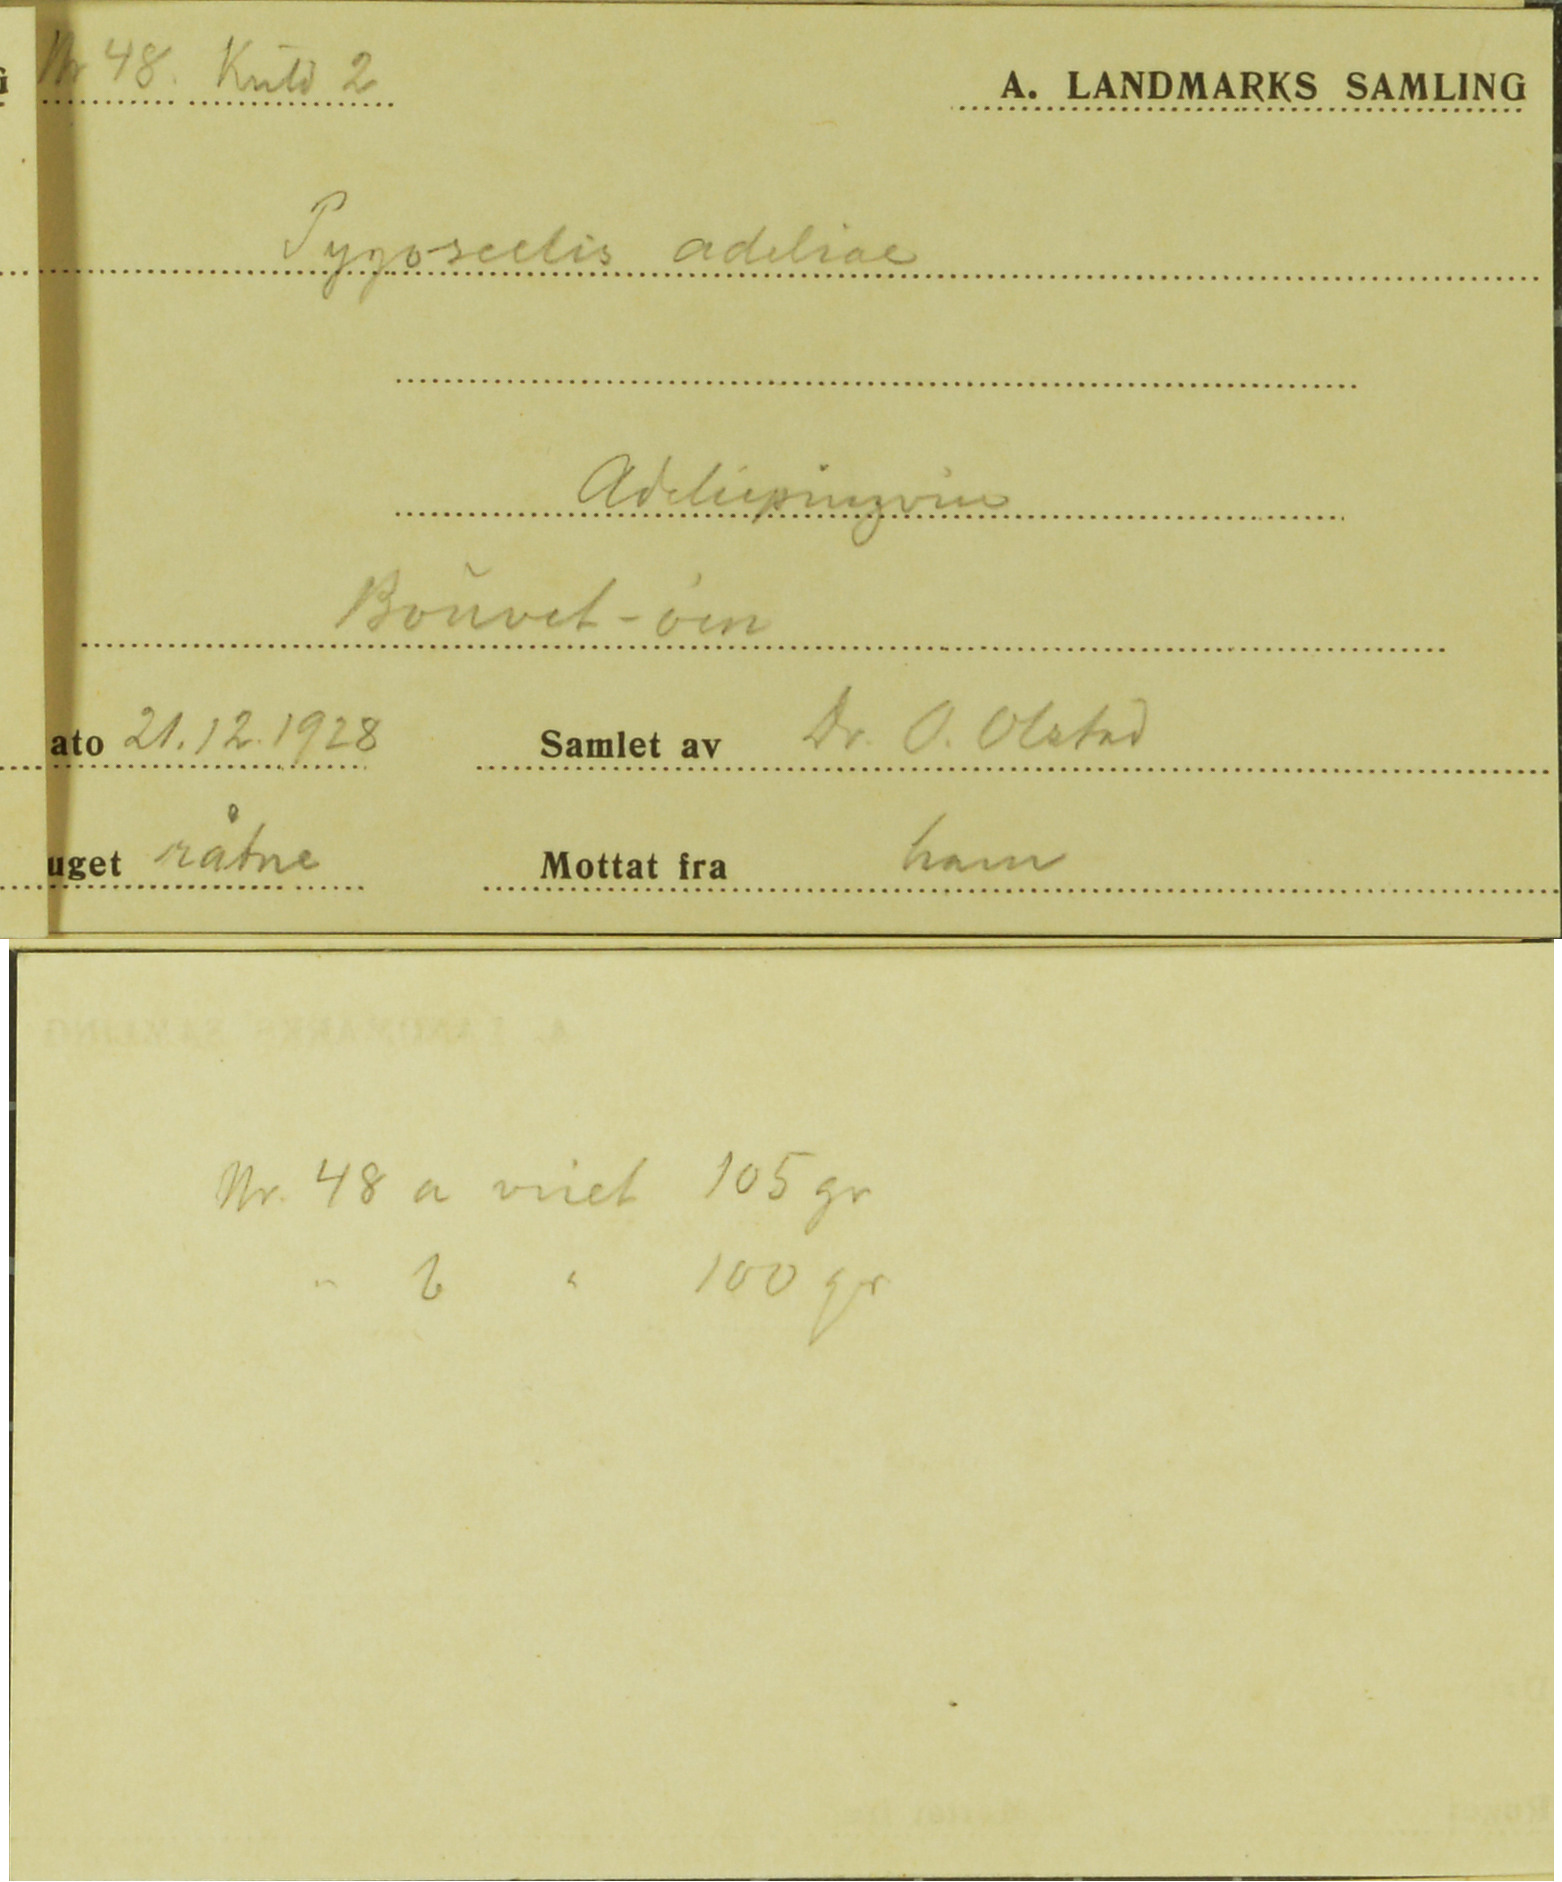 Nr 48. Kuld 2
A. LANDMARKS SAMLING
Pygoscelis adeliae
Adeliepingvin
Bouvet-øen
ato 21.12.1928 Samlet av Dr. O. Olstad
uget råtne Mottat fra ham
Nr. 48 a viiet 105 gr
" b " 100 gr